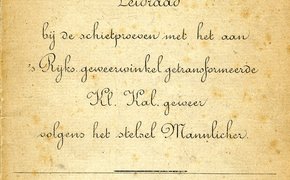 Leidraad
bij de schietproeven met het aan
's Rijks geweerwinkel getransformeerde
Kl. Kal. geweer
volgens het stelsel Mannlicher.